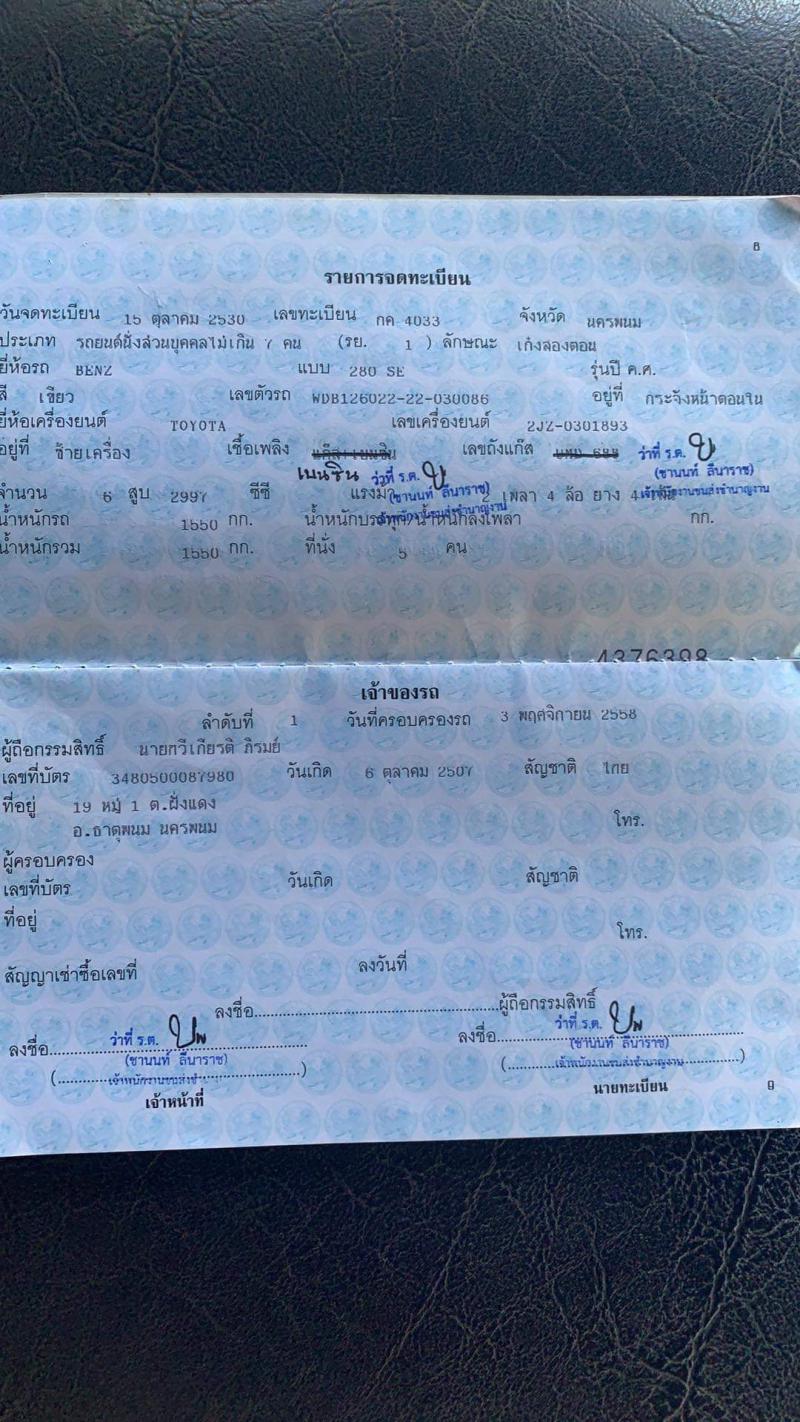 8
รายการจดทะเบียน
วันจดทะเบียน 15 ตุลาคม 2530 เลขทะเบียน กค 4033 จังหวัด นครพนม
ประเภท รถยนต์นั่งส่วนบุคคลไม่เกิน 7 คน (รย. 1 ) ลักษณะ เก๋งสองตอน
ยี่ห้อรถ BENZ แบบ 280 SE รุ่นปี ค.ศ.
สี เขียว เลขตัวรถ WDB126022-22-030086 อยู่ที่ กระจังหน้าตอนใน
ยี่ห้อเครื่องยนต์ TOYOTA เลขเครื่องยนต์ 2JZ-0301893
อยู่ที่ ซ้ายเครื่อง เชื้อเพลิง เลขถังแก๊ส ว่าที่ ร.ต.
เบนซิน ว่าที่ ร.ต. (ชานนท์ ลีนาราช)
จำนวน 6 สูบ 2997 ซีซี แรงม้า (ชานนท์ ลีนาราช) 2 เพลา 4 ล้อ ยาง 4 เจ้าพนักงานขนส่งชำนาญงาน
น้ำหนักรถ 1550 กก. น้ำหนักบรรทุก/น้ำหนักลงเพลา กก.
น้ำหนักรวม 1550 กก. ที่นั่ง 5 คน
4376398
เจ้าของรถ
ลำดับที่ 1 วันที่ครอบครองรถ 3 พฤศจิกายน 2558
ผู้ถือกรรมสิทธิ์ นายทวีเกียรติ ภิรมย์
เลขที่บัตร 3480500087980 วันเกิด 6 ตุลาคม 2507 สัญชาติ ไทย
ที่อยู่ 19 หมู่ 1 ต.ฝั่งแดง
อ.ธาตุพนม นครพนม โทร.
ผู้ครอบครอง
เลขที่บัตร วันเกิด สัญชาติ
ที่อยู่ โทร.
สัญญาเช่าซื้อเลขที่ ลงวันที่
ลงชื่อ........................................ผู้ถือกรรมสิทธิ์
ลงชื่อ ว่าที่ ร.ต. ลงชื่อ ว่าที่ ร.ต.
(ชานนท์ ลีนาราช) (ชานนท์ ลีนาราช)
เจ้าพนักงานขนส่งชำนาญงาน
เจ้าหน้าที่ นายทะเบียน 9